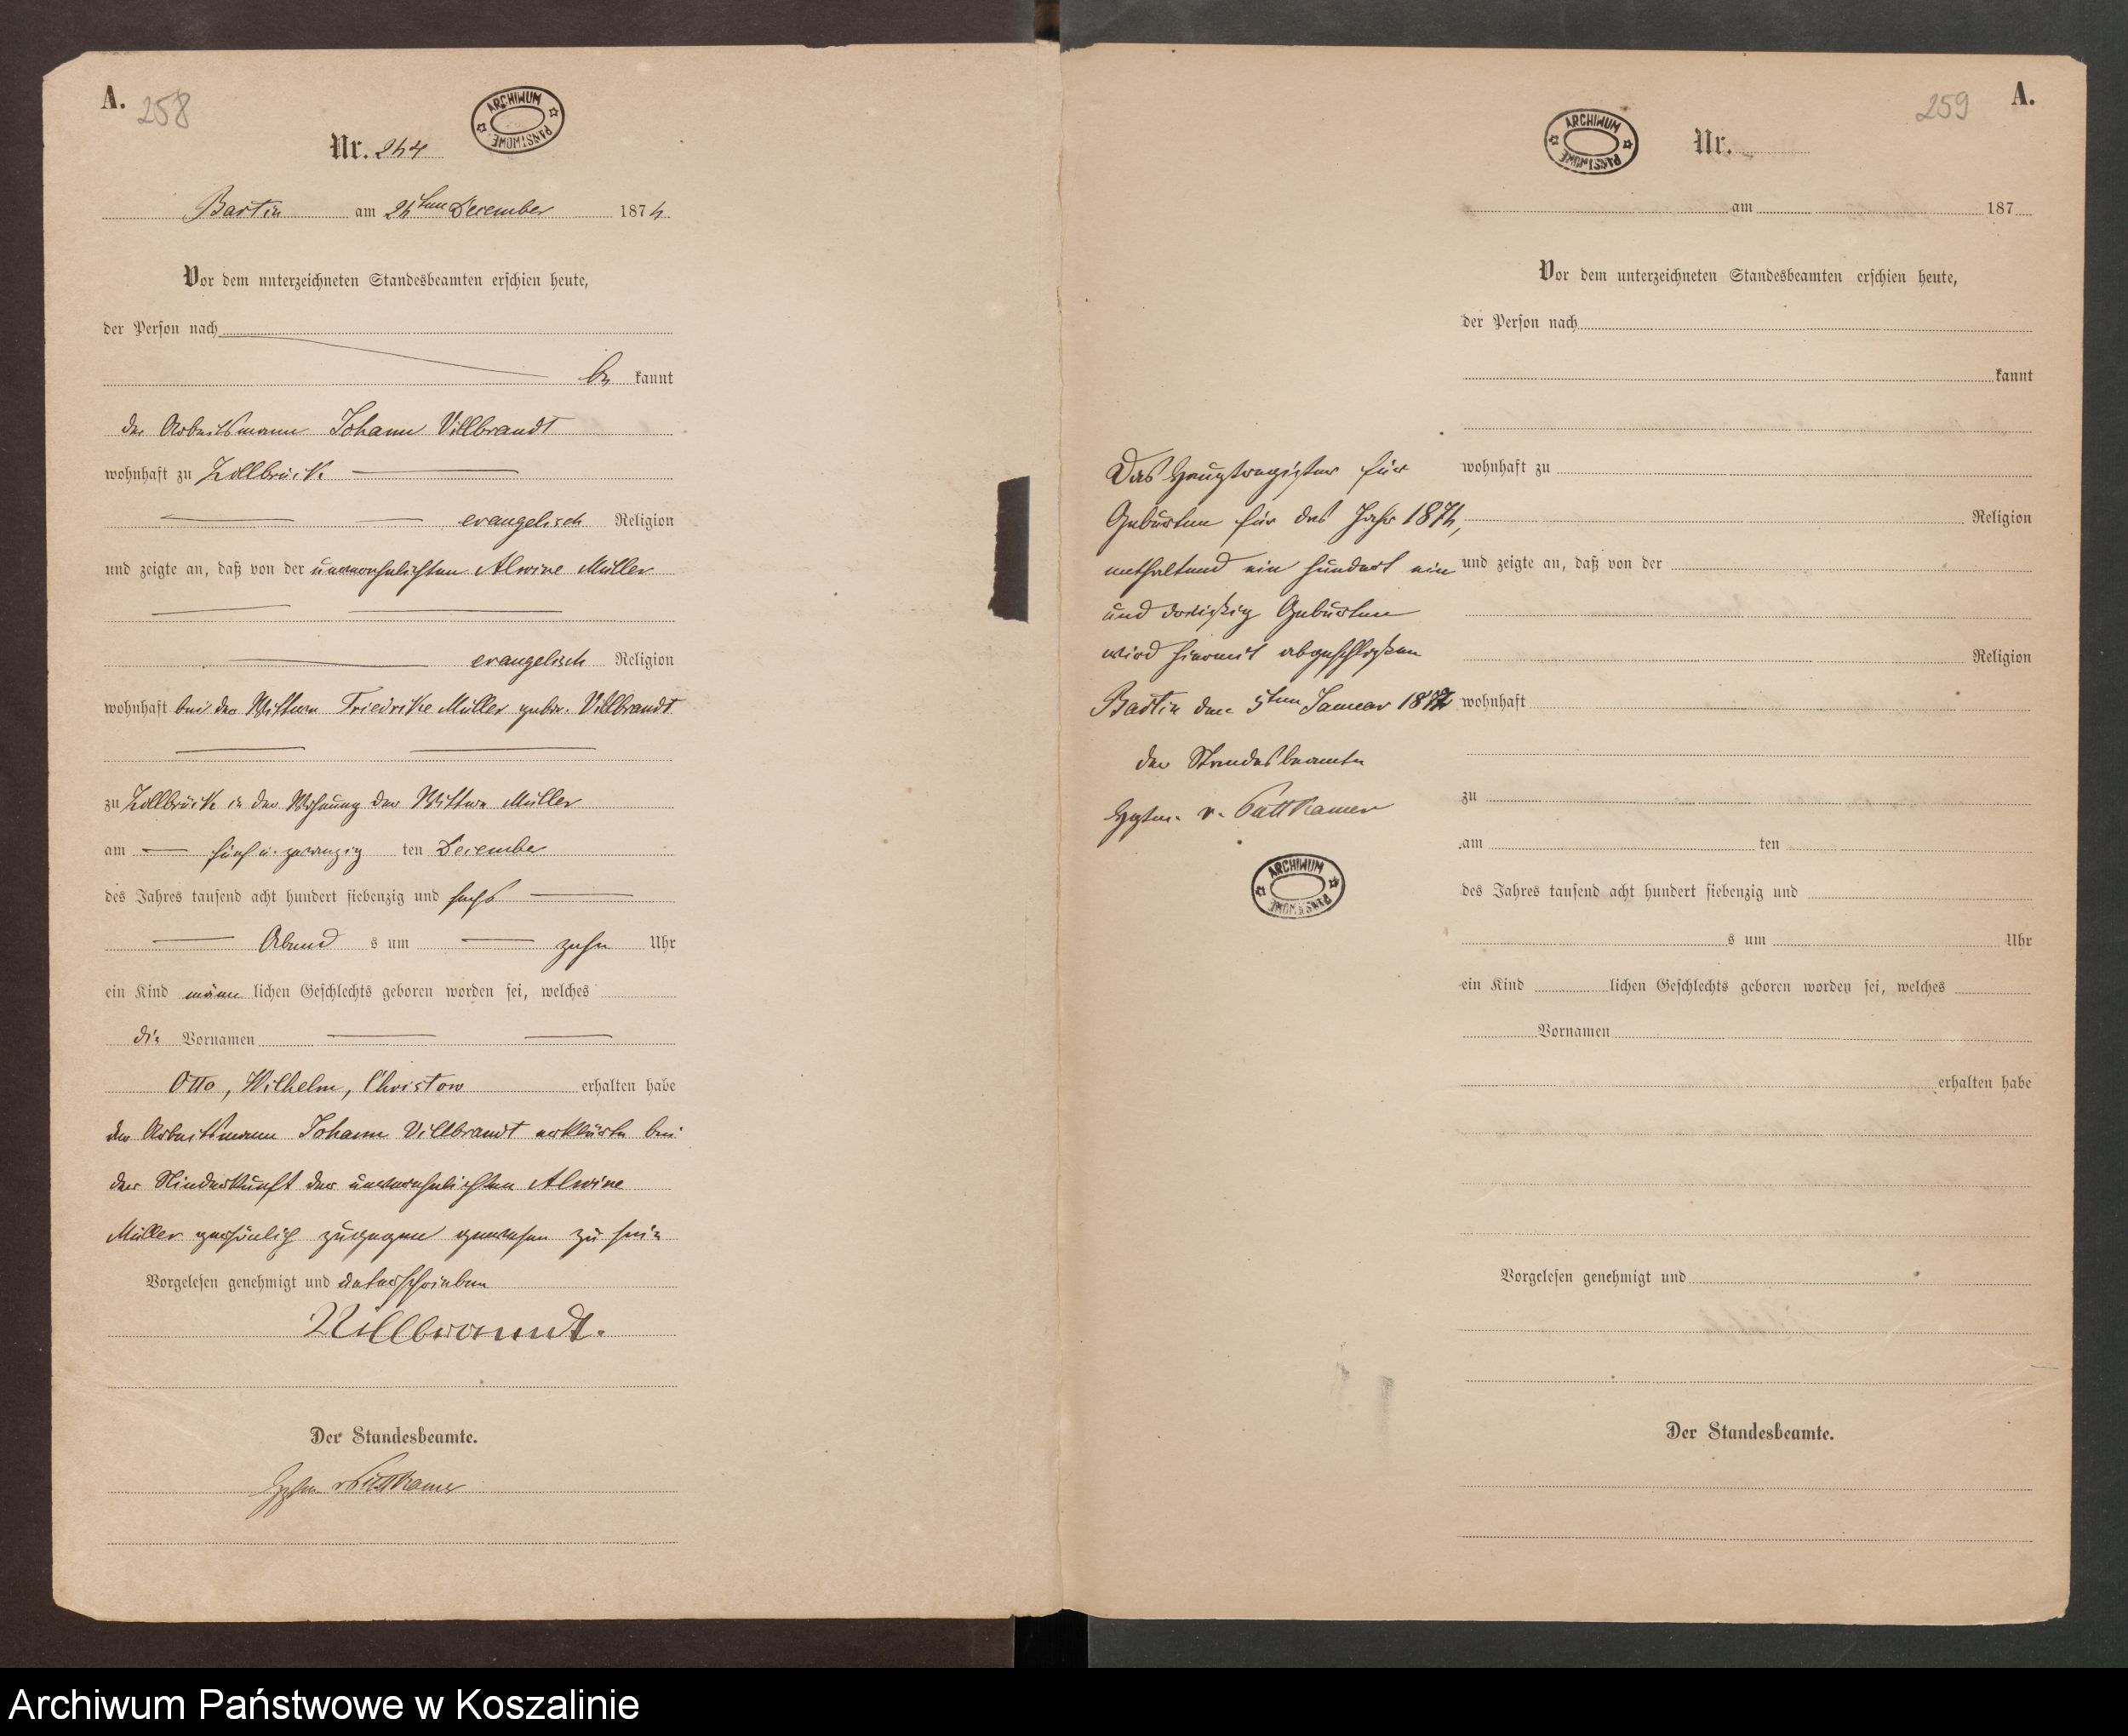 A. 258
Nr. 244
Bartin am 26ten December 1876
Vor dem unterzeichneten Standesbeamten erschien heute,
der Person nach
be kannt
der Arbeitsmann Johann Villbrandt
wohnhaft zu Zollbrück
evangelisch Religion
und zeigte an, daß von der unverehelichten Alwine Müller
evangelisch Religion
wohnhaft bei der Wittwe Friedrike Müller gebor. Villbrandt
zu Zollbrück in der Wohnung der Wittwe Müller
am fünf u. zwanzig ten December
des Jahres tausend acht hundert siebenzig und sechs
Abend s um zehn Uhr
ein Kind männ lichen Geschlechts geboren worden sei, welches
die Vornamen
Otto, Wilhelm, Christow erhalten habe
der Arbeitsmann Johann Villbrandt erklärte bei
der Niederkunft der unverehelichten Alwine
Müller persönlich zugegen gewesen zu sein
Vorgelesen genehmigt und unterschrieben
Villbrandt.
Der Standesbeamte.
v Puttkamer
ARCHIWUM PAŃSTWOWE
259 A.
Nr.
am 187
Vor dem unterzeichneten Standesbeamten erschien heute,
der Person nach
kannt
wohnhaft zu
Religion
und zeigte an, daß von der
Religion
wohnhaft
zu
am ten
des Jahres tausend acht hundert siebenzig und
s um Uhr
ein Kind lichen Geschlechts geboren worden sei, welches
Vornamen
erhalten habe
Vorgelesen genehmigt und
Der Standesbeamte.
Das Hauptregister für
Geburten für das Jahr 1876,
enthaltend ein hundert ein
und dreißig Geburten
wird hiermit abgeschloßen
Bartin den 5ten Januar 1877
der Standesbeamte
v. Puttkamer
ARCHIWUM PAŃSTWOWE
ARCHIWUM PAŃSTWOWE
Archiwum Państwowe w Koszalinie